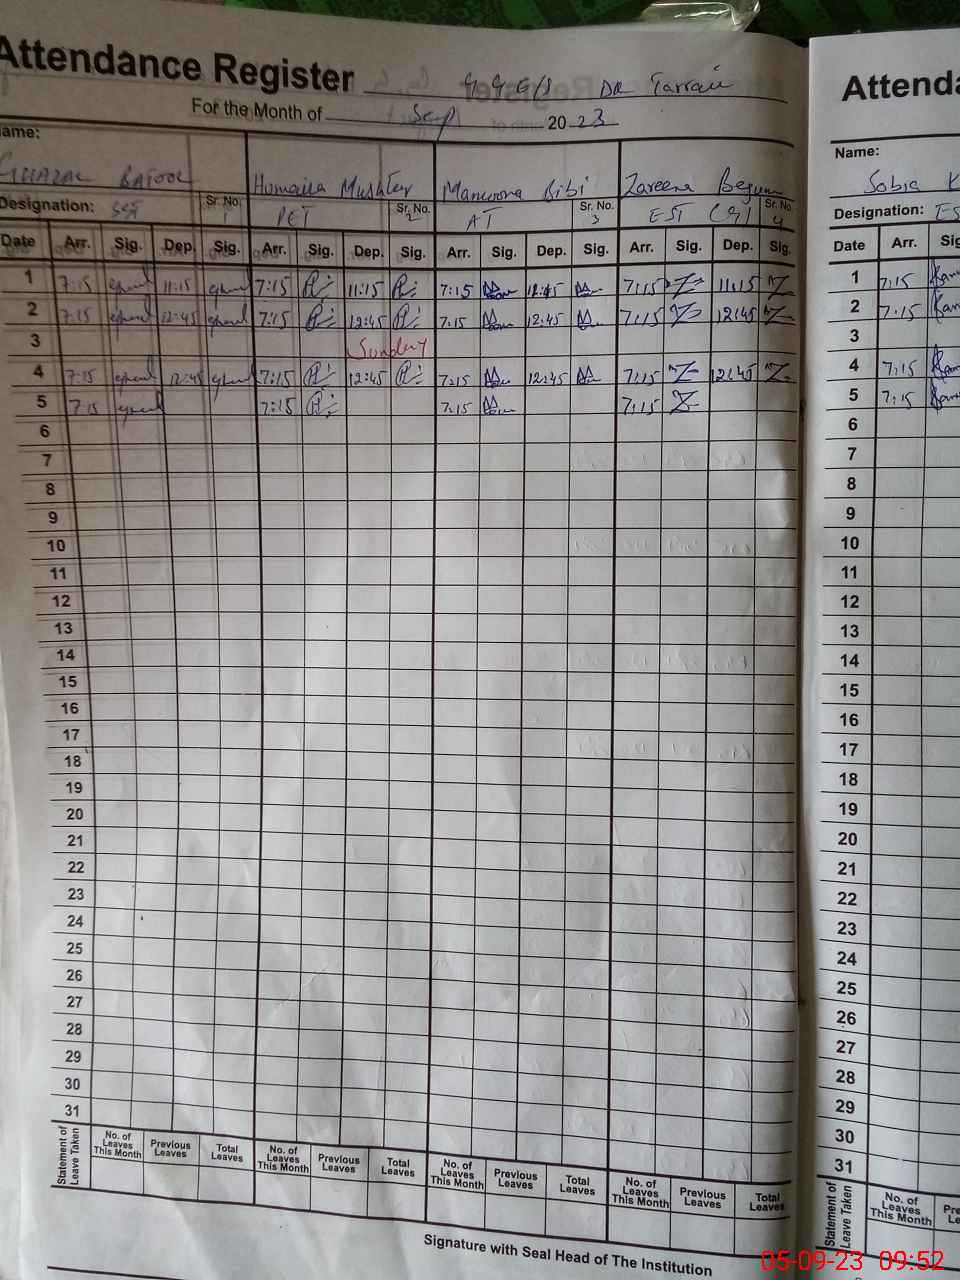 Attendance Register G G E/S DR Tarrair
Attenda
For the Month of Sep 2023
Name: Name:
GHAZAL BATOOL Humaira Mushtaq Mamoona Bibi Zareena Begum Sobia K
Designation: SST Sr. No. 1 PET Sr. No. 2 AT Sr. No. 3 EST (G) Sr. No. 4 Designation: ES
Date Arr. Sig. Dep. Sig. Arr. Sig. Dep. Sig. Arr. Sig. Dep. Sig. Arr. Sig. Dep. Sig. Date Arr. Sig
1 7:15 11:15 7:15 11:15 7:15 12:45 7:15 11:15 1 7:15
2 7:15 12:45 7:15 12:45 7:15 12:45 7:15 12:45 2 7:15
3 Sunday 3
4 7:15 12:45 7:15 12:45 7:15 12:45 7:15 12:45 4 7:15
5 7:15 7:15 7:15 7:15 5 7:15
6 6
7 7
8 8
9 9
10 10
11 11
12 12
13 13
14 14
15 15
16 16
17 17
18 18
19 19
20 20
21 21
22 22
23 23
24 24
25 25
26 26
27 27
28 28
29 29
30 30
31 31
Statement of Leave Taken No. of Leaves This Month Previous Leaves Total Leaves No. of Leaves This Month Previous Leaves Total Leaves No. of Leaves This Month Previous Leaves Total Leaves No. of Leaves This Month Previous Leaves Total Leaves Statement of Leave Taken No. of Leaves This Month Pre Le
Signature with Seal Head of The Institution
05-09-23 09:52